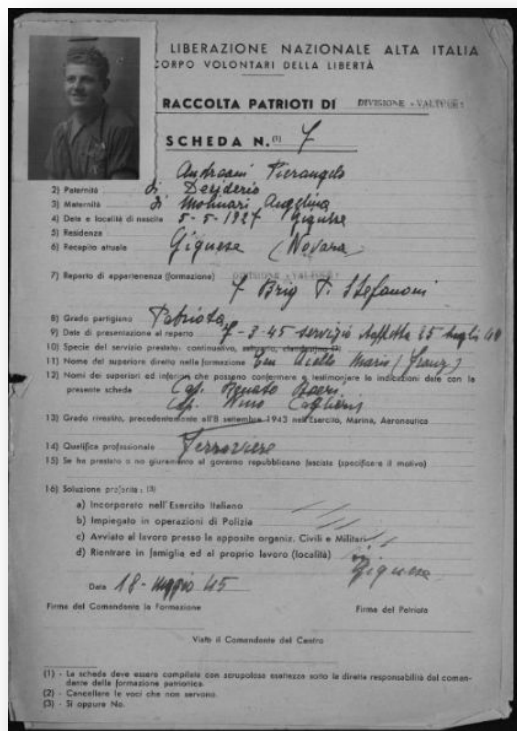 LIBERAZIONE NAZIONALE ALTA ITALIA
CORPO VOLONTARI DELLA LIBERTÀ
RACCOLTA PATRIOTI DI DIVISIONE
SCHEDA N. (1) 7
Pierangelo
2) Paternità di Desiderio
3) Maternità di Molinari Angelina
4) Data e località di nascita 5-5-1927 Gignese
5) Residenza
6) Recapito attuale Gignese (Novara)
7) Reparto di appartenenza (formazione) DIVISIONE
7 Brig P. Stefanoni
8) Grado partigiano Patriota
9) Data di presentazione al reparto 7-3-45 servizio staffetta
10) Specie del servizio prestato: continuativo,
11) Nome del superiore diretto nella formazione Mario (Franz)
12) Nomi dei superiori ed inferiori che possono confermare e testimoniare le indicazioni date con la
presente scheda Cap. Renato Boeri
Cap. Nino
13) Grado rivestito, precedentemente all'8 settembre 1943 nell'Esercito, Marina, Aeronautica
14) Qualifica professionale Ferroviere
15) Se ha prestato o no giuramento al governo repubblicano fascista (specificare il motivo)
16) Soluzione preferita: (3)
a) Incorporato nell'Esercito Italiano
b) Impiegato in operazioni di Polizia
c) Avviato al lavoro presso le apposite organiz. Civili e Militari
d) Rientrare in famiglia ed al proprio lavoro (località) Gignese
Data 18-Maggio 45
Firma del Comandante la Formazione Firma del Patriota
Visto il Comandante del Centro
(1) - La scheda deve essere compilata con scrupolosa esattezza sotto la diretta responsabilità del coman-
dante della formazione patriottica.
(2) - Cancellare le voci che non servono.
(3) - Sì oppure No.